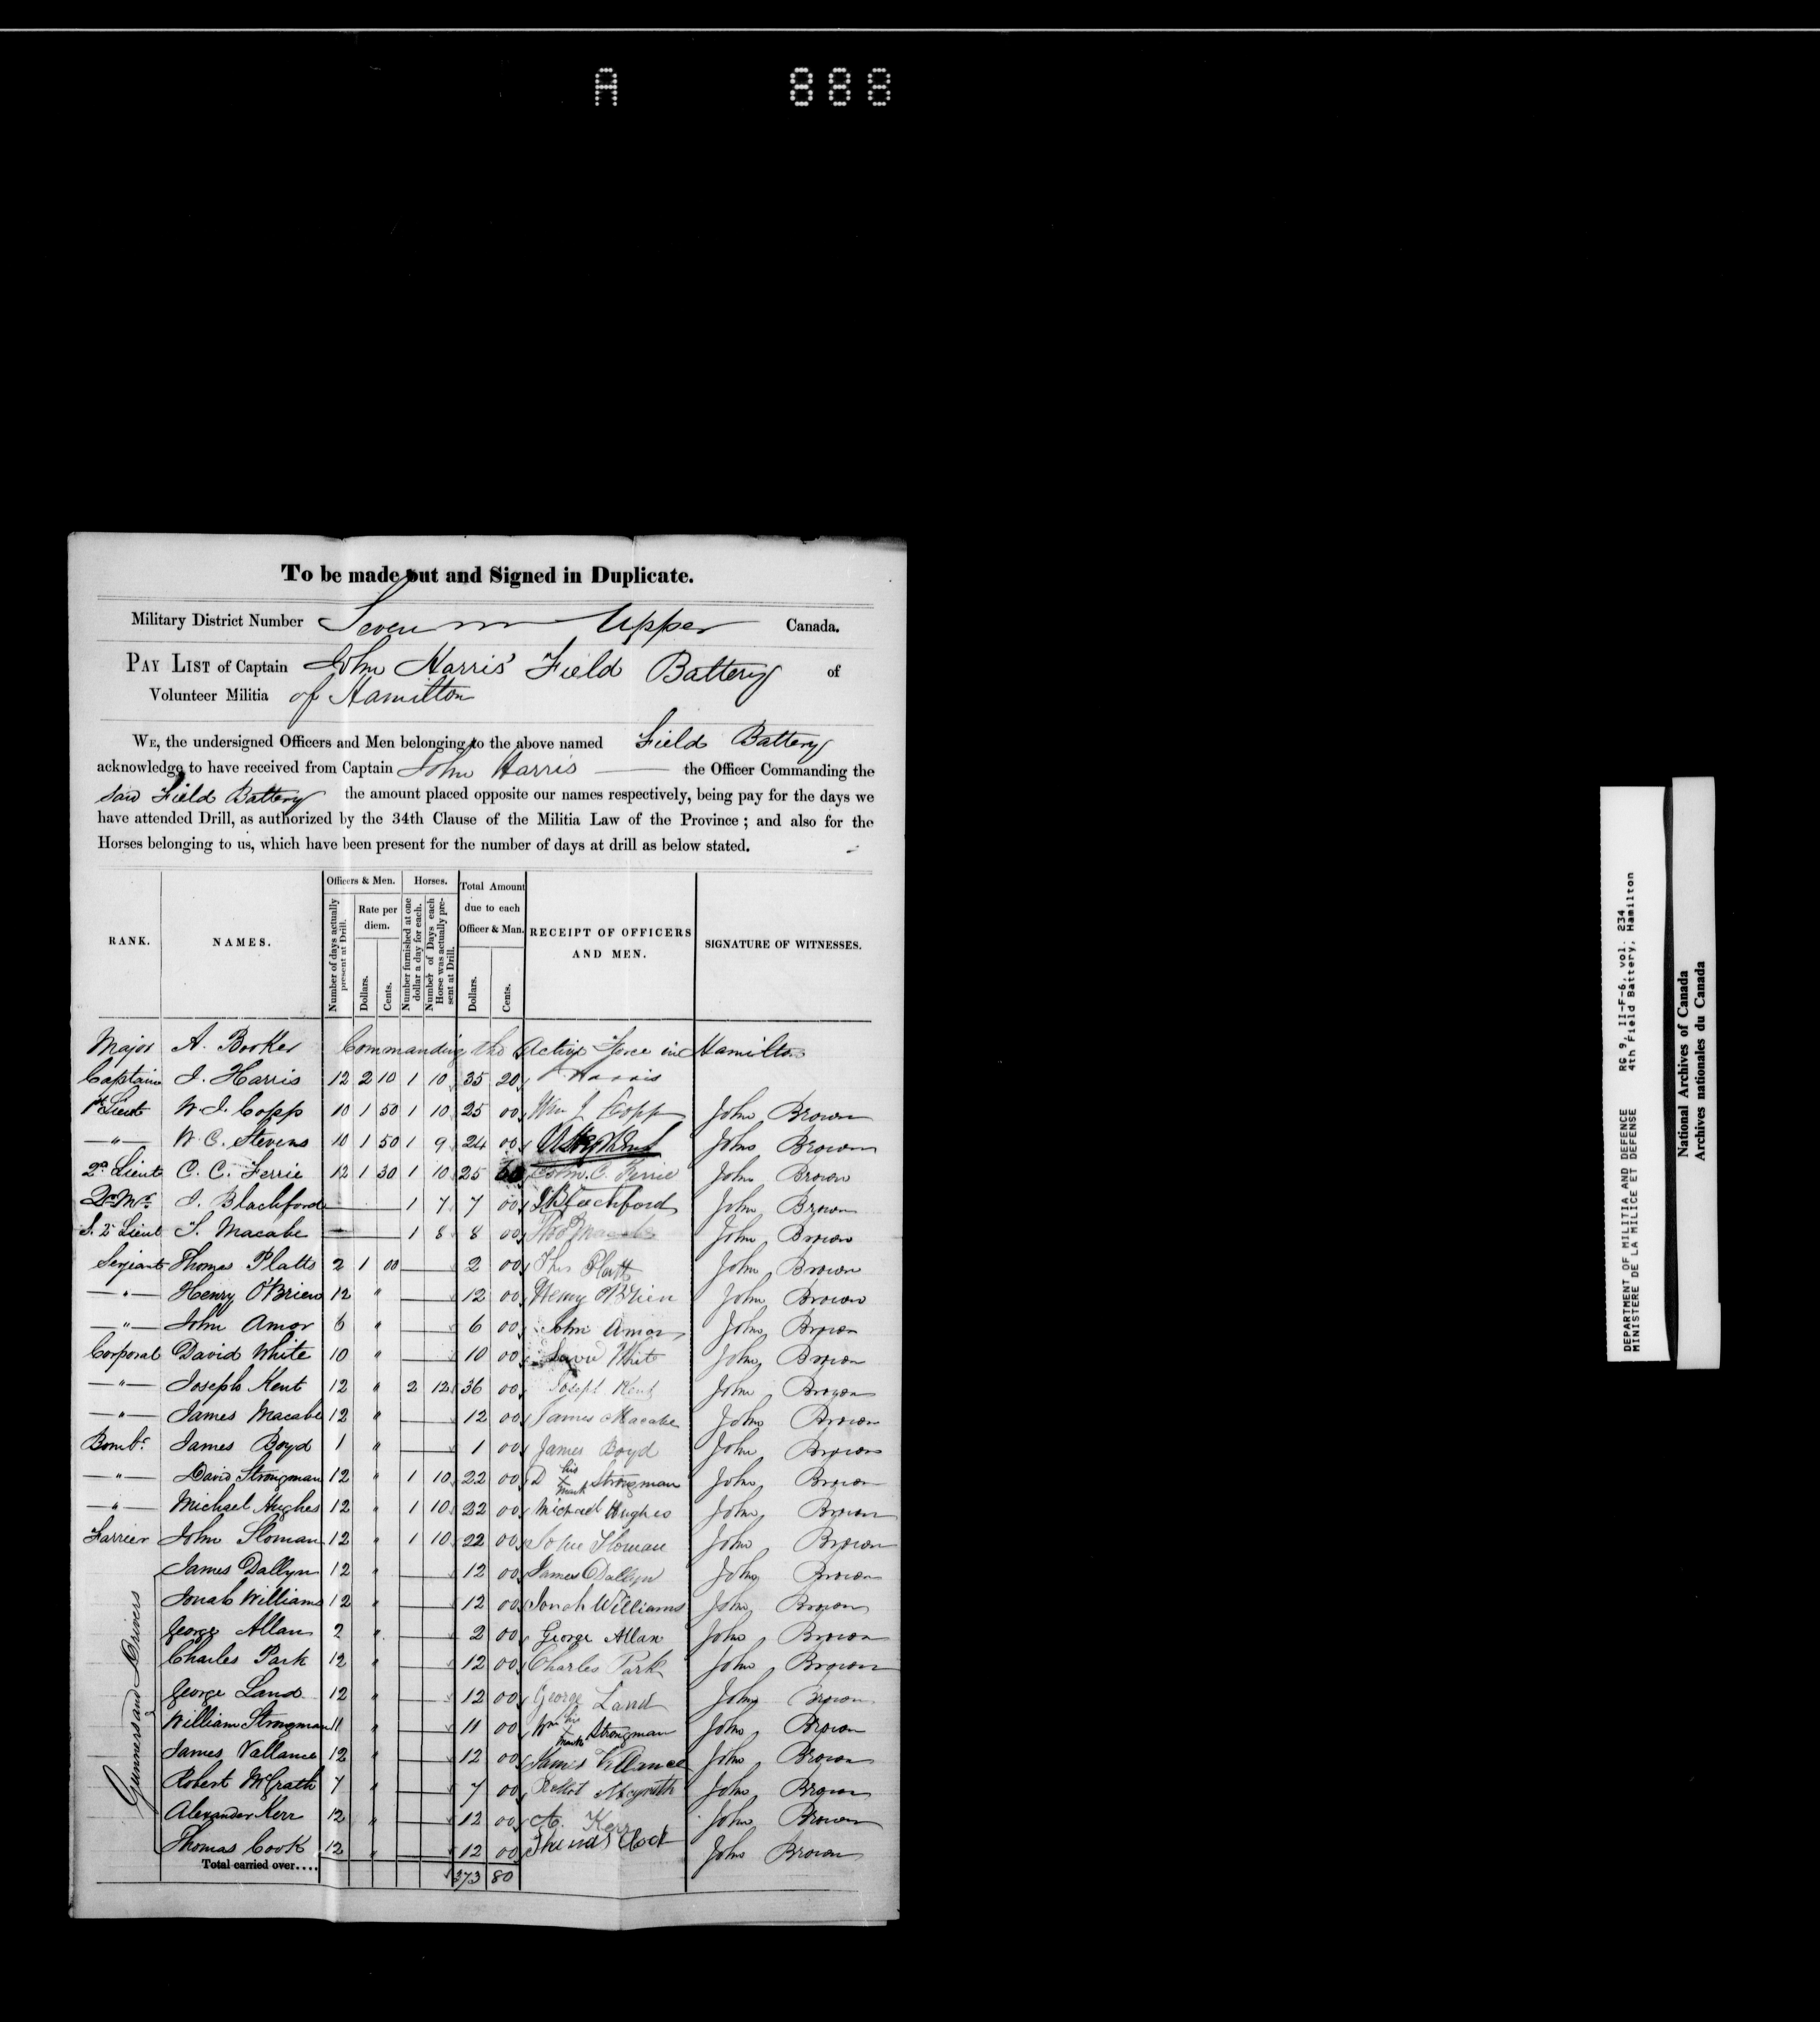 A 888
To be made out and Signed in Duplicate.
Military District Number Seven Upper Canada.
PAY LIST of Captain John Harris' Field Battery of
Volunteer Militia of Hamilton
WE, the undersigned Officers and Men belonging to the above named Field Battery
acknowledge to have received from Captain John Harris the Officer Commanding the
said Field Battery the amount placed opposite our names respectively, being pay for the days we
have attended Drill, as authorized by the 34th Clause of the Militia Law of the Province ; and also for the
Horses belonging to us, which have been present for the number of days at drill as below stated.
RANK. NAMES. Officers & Men. Number of days actually present at Drill. Rate per diem. Dollars. Cents. Horses. Number furnished at one dollar a day for each. Number of Days each Horse was actually present at Drill. Total Amount due to each Officer & Man. Dollars. Cents. RECEIPT OF OFFICERS AND MEN. SIGNATURE OF WITNESSES.
Major A. Booker Commanding the Active Force in Hamilton
Captain J. Harris 12 2 10 1 10 35 20 Harris
1st Lieut W. J. Copp 10 1 50 1 10 25 00 Wm J Copp John Brown
—"— W. C. Stevens 10 1 50 1 9 24 00 John Brown
2d Lieut C. C. Ferrie 12 1 30 1 10 25 60 Colin C. Ferrie John Brown
Qr Mr J. Blachford 1 7 7 00 J Blachford John Brown
S. 2 Lieut T. Macabe 1 8 8 00 Macabe John Brown
Serjeant Thomas Platts 2 1 00 2 00 Thos Platts John Brown
—"— Henry O'Brien 12 " 12 00 Henry O'Brien John Brown
—"— John Amor 6 " 6 00 John Amor John Brown
Corporal David White 10 " 10 00 David White John Brown
—"— Joseph Kent 12 " 2 12 36 00 Joseph Kent John Brown
—"— James Macabe 12 " 12 00 James Macabe John Brown
Bombr James Boyd 1 " 1 00 James Boyd John Brown
—"— David Strongman 12 " 1 10 22 00 D his x mark Strongman John Brown
—"— Michael Hughes 12 " 1 10 22 00 Michael Hughes John Brown
Farrier John Sloman 12 " 1 10 22 00 John Sloman John Brown
Gunners and Drivers
James Dallyn 12 " 12 00 James Dallyn John Brown
Jonah Williams 12 " 12 00 Jonah Williams John Brown
George Allan 2 " 2 00 George Allan John Brown
Charles Park 12 " 12 00 Charles Park John Brown
George Land 12 " 12 00 George Land John Brown
William Strongman 11 " 11 00 Wm his x mark Strongman John Brown
James Vallance 12 " 12 00 James Vallance John Brown
Robert McGrath 7 " 7 00 Robert Mcgrath John Brown
Alexander Kerr 12 " 12 00 A. Kerr John Brown
Thomas Cook 12 " 12 00 Thomas Cook John Brown
Total carried over.... 373 80
DEPARTMENT OF MILITIA AND DEFENCE RG 9, II-F-6, vol. 234
MINISTERE DE LA MILICE ET DEFENSE 4th Field Battery, Hamilton
National Archives of Canada
Archives nationales du Canada